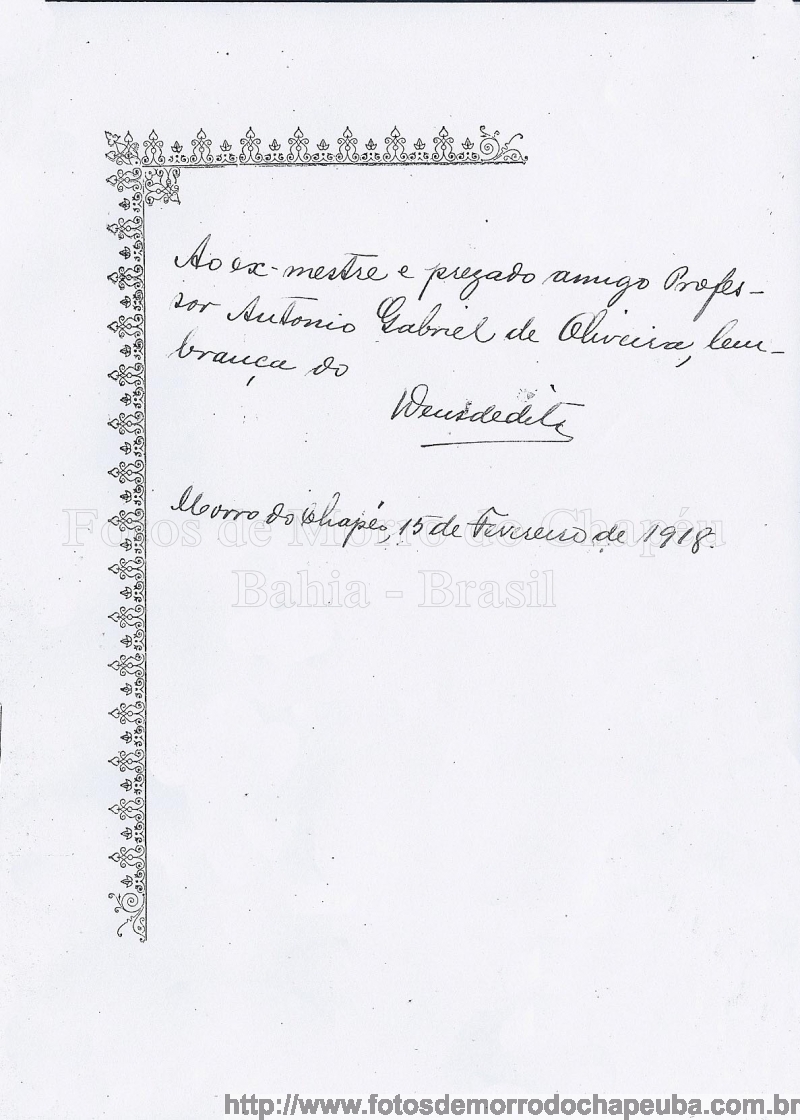 Ao ex-mestre e prezado amigo Profes-
sor Antonio Gabriel de Oliveira, lem-
brança do
Deusdedit
Morro do Chapéo, 15 de Fevereiro de 1918.
Fotos de Morro do Chapéu
Bahia - Brasil
http://www.fotosdemorrodochapeuba.com.br